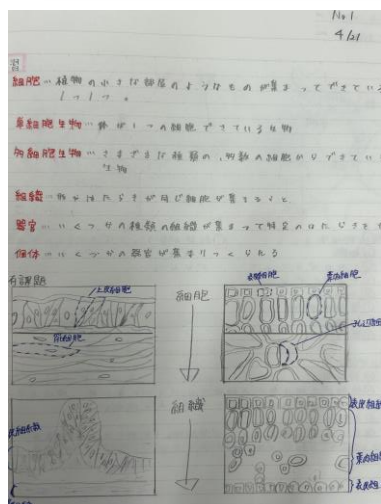 No.1
4/21
習
細胞…植物の小さな部屋のようなものが集まってできている
1つ1つ。
単細胞生物…体が1つの細胞でできている生物
多細胞生物…さまざまな種類の、多数の細胞からできてい
生物
組織…形やはたらきが同じ細胞が集まると
器官…いくつかの種類の組織が集まって特定のはたらきを
個体…いくつかの器官が集まりつくられる
有課題
上皮細胞
筋細胞
細胞
表皮細胞
葉肉細胞
孔辺細胞
組織
表皮組織
葉肉組織